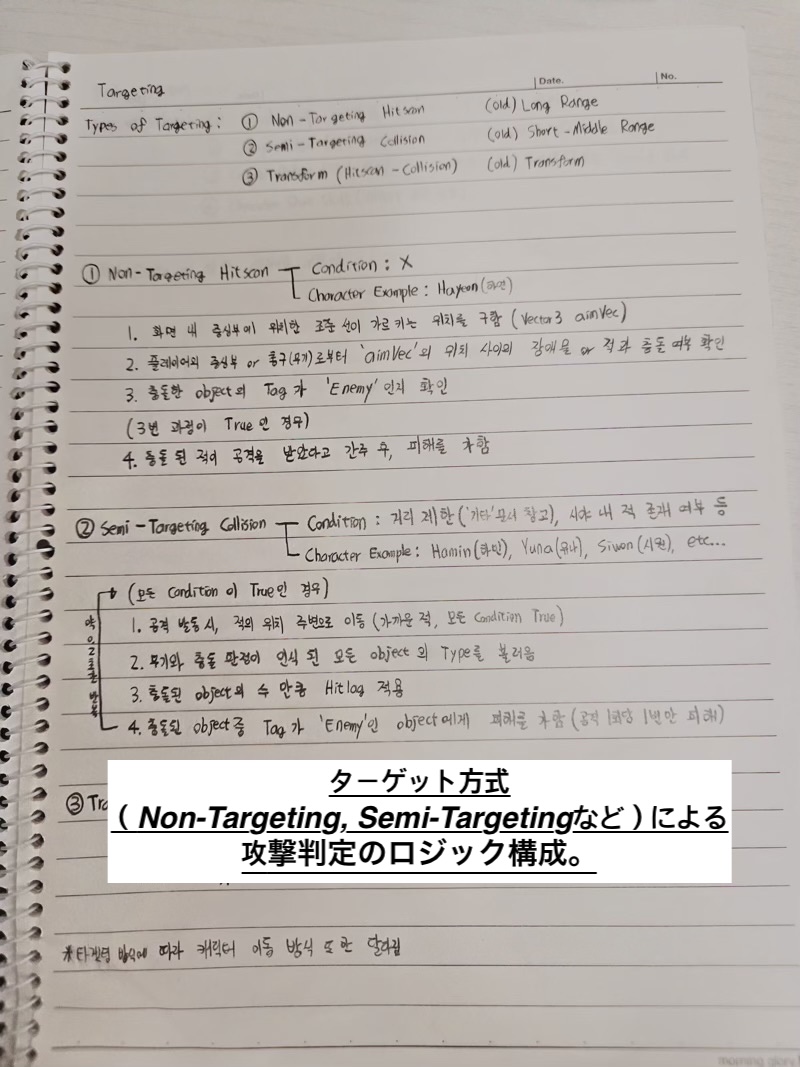 Date.
No.
Targeting
Types of Targeting : ① Non-Targeting Hitscan (old) Long Range
② Semi-Targeting Collision (old) Short-Middle Range
③ Transform (Hitscan-Collision) (old) Transform
① Non-Targeting Hitscan Condition : X
Character Example : Hayeon(하연)
1. 화면 내 중심부에 위치한 조준선이 가르키는 위치를 구함 (Vector3 aimVec)
2. 플레이어의 중심부 or 총구(무기)로부터 'aimVec'의 위치 사이의 장애물 or 적과 충돌 여부 확인
3. 충돌한 object의 Tag가 'Enemy'인지 확인
(3번 과정이 True인 경우)
4. 충돌된 적이 공격을 받았다고 간주 후, 피해를 가함
② Semi-Targeting Collision Condition : 거리 제한('기타'문서 참고), 시야 내 적 존재 여부 등
Character Example : Hamin(하민), Yuna(유나), Siwon(시원), etc...
(모든 Condition이 True인 경우)
1. 공격 발동 시, 적의 위치 주변으로 이동 (가까운 적, 모든 Condition True)
2. 무기와 충돌 판정이 인식 된 모든 object의 Type를 불러옴
3. 충돌된 object의 수 만큼 Hitlag 적용
4. 충돌된 object중 Tag가 'Enemy'인 object에게 피해를 가함 (공격 1회당 1번만 피해)
약 0.2초간 반복
③ Tra
ターゲット方式
（ Non-Targeting, Semi-Targetingなど ）による
攻撃判定のロジック構成。
*타겟팅 방식에 따라 캐릭터 이동 방식 또한 달라짐
morning glory